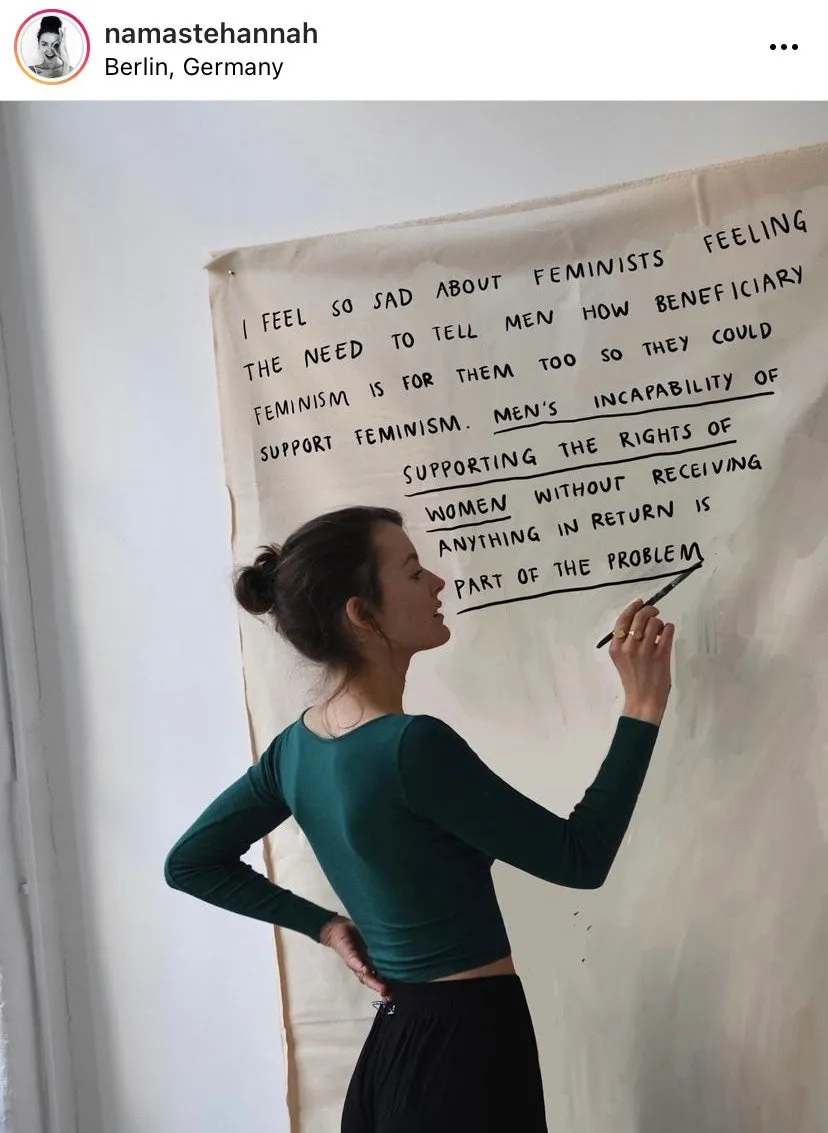 namastehannah
Berlin, Germany
I FEEL SO SAD ABOUT FEMINISTS FEELING
THE NEED TO TELL MEN HOW BENEFICIARY
FEMINISM IS FOR THEM TOO SO THEY COULD
SUPPORT FEMINISM. MEN'S INCAPABILITY OF
SUPPORTING THE RIGHTS OF
WOMEN WITHOUT RECEIVING
ANYTHING IN RETURN IS
PART OF THE PROBLEM